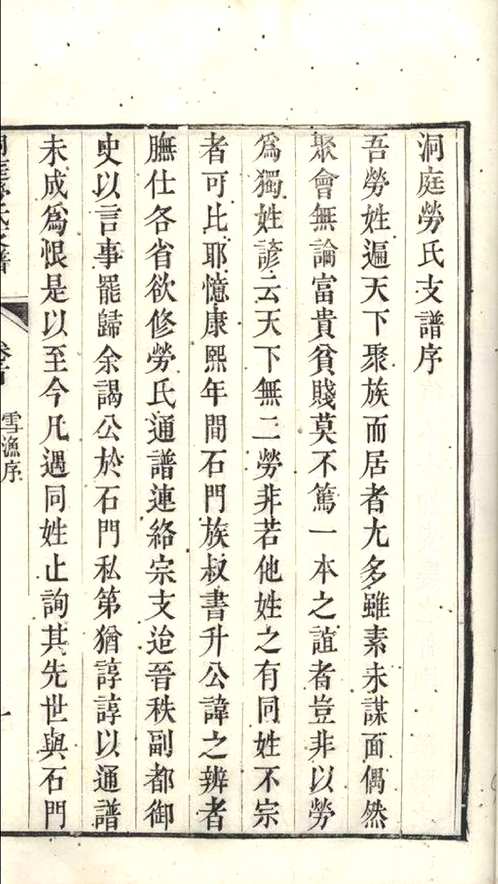 洞庭勞氏支譜序
吾勞姓遍天下聚族而居者尢多雖素未謀面偶然
聚會無論富貴貧賤莫不篤一本之誼者豈非以勞
爲獨姓諺云天下無二勞非若他姓之有同姓不宗
者可比耶憶康熙年間石門族叔書升公諱之辨者
膴仕各省欲修勞氏通譜連絡宗支迨晉秩副都御
史以言事罷歸余謁公於石門私第猶諄諄以通譜
未成爲恨是以至今凡遇同姓止詢其先世與石門
雪漁序
一